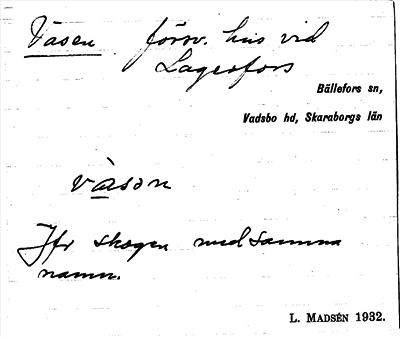 Vasen försv. hus vid
Lagerfors
Bällefors sn,
Vadsbo hd, Skaraborgs län
vàson
Jfr skogen med samma
namn.
L. MADSÉN 1932.